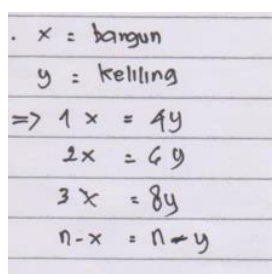 . x = bangun
y = keliling
=> 1 x = 4y
2x = 6y
3x = 8y
n-x = n-y